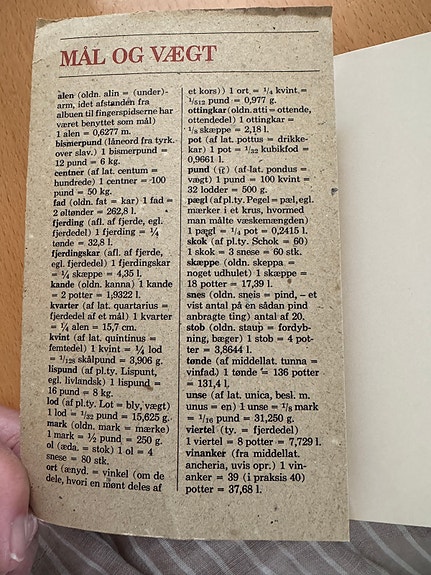 MÅL OG VÆGT
alen (oldn. alin = (under)-
arm, idet afstanden fra
albuen til fingerspidserne har
været benyttet som mål)
1 alen = 0,6277 m.
bismerpund (låneord fra tyrk.
over slav.) 1 bismerpund =
12 pund = 6 kg.
centner (af lat. centum =
hundrede) 1 centner = 100
pund = 50 kg.
fad (oldn. fat = kar) 1 fad =
2 øltønder = 262,8 l.
fjerding (afl. af fjerde, egl.
fjerdedel) 1 fjerding = ¼
tønde = 32,8 l.
fjerdingskar (afl. af fjerde,
egl. fjerdedel) 1 fjerdingskar
= ¼ skæppe = 4,35 l.
kande (oldn. kanna) 1 kande
= 2 potter = 1,9322 l.
kvarter (af lat. quartarius =
fjerdedel af et mål) 1 kvarter
= ¼ alen = 15,7 cm.
kvint (af lat. quintinus =
femtedel) 1 kvint = ¼ lod
= 1/128 skålpund = 3,906 g.
lispund (af pl.ty. Lispunt,
egl. livlandsk) 1 lispund =
16 pund = 8 kg.
lod (af pl.ty. Lot = bly, vægt)
1 lod = 1/32 pund = 15,625 g.
mark (oldn. mark = mærke)
1 mark = ½ pund = 250 g.
ol (æda. = stok) 1 ol = 4
snese = 80 stk.
ort (ænyd. = vinkel (om de
dele, hvori en mønt deles af
et kors)) 1 ort = ¼ kvint =
1/512 pund = 0,977 g.
ottingkar (oldn. atti = ottende,
ottendedel) 1 ottingkar =
⅛ skæppe = 2,18 l.
pot (af lat. pottus = drikke-
kar) 1 pot = 1/32 kubikfod =
0,9661 l.
pund (af lat. pondus =
vægt) 1 pund = 100 kvint =
32 lodder = 500 g.
pægl (af pl.ty. Pegel = pæl, egl.
mærker i et krus, hvormed
man målte væskemængden)
1 pægl = ¼ pot = 0,2415 l.
skok (af pl.ty. Schok = 60)
1 skok = 3 snese = 60 stk.
skæppe (oldn. skeppa =
noget udhulet) 1 skæppe =
18 potter = 17,39 l.
snes (oldn. sneis = pind, – et
vist antal på en sådan pind
anbragte ting) antal af 20.
stob (oldn. staup = fordyb-
ning, bæger) 1 stob = 4 pot-
ter = 3,8644 l.
tønde (af middellat. tunna =
vinfad.) 1 tønde = 136 potter
= 131,4 l.
unse (af lat. unica, besl. m.
unus = en) 1 unse = ⅛ mark
= 1/16 pund = 31,250 g.
viertel (ty. = fjerdedel)
1 viertel = 8 potter = 7,729 l.
vinanker (fra middellat.
ancheria, uvis opr.) 1 vin-
anker = 39 (i praksis 40)
potter = 37,68 l.